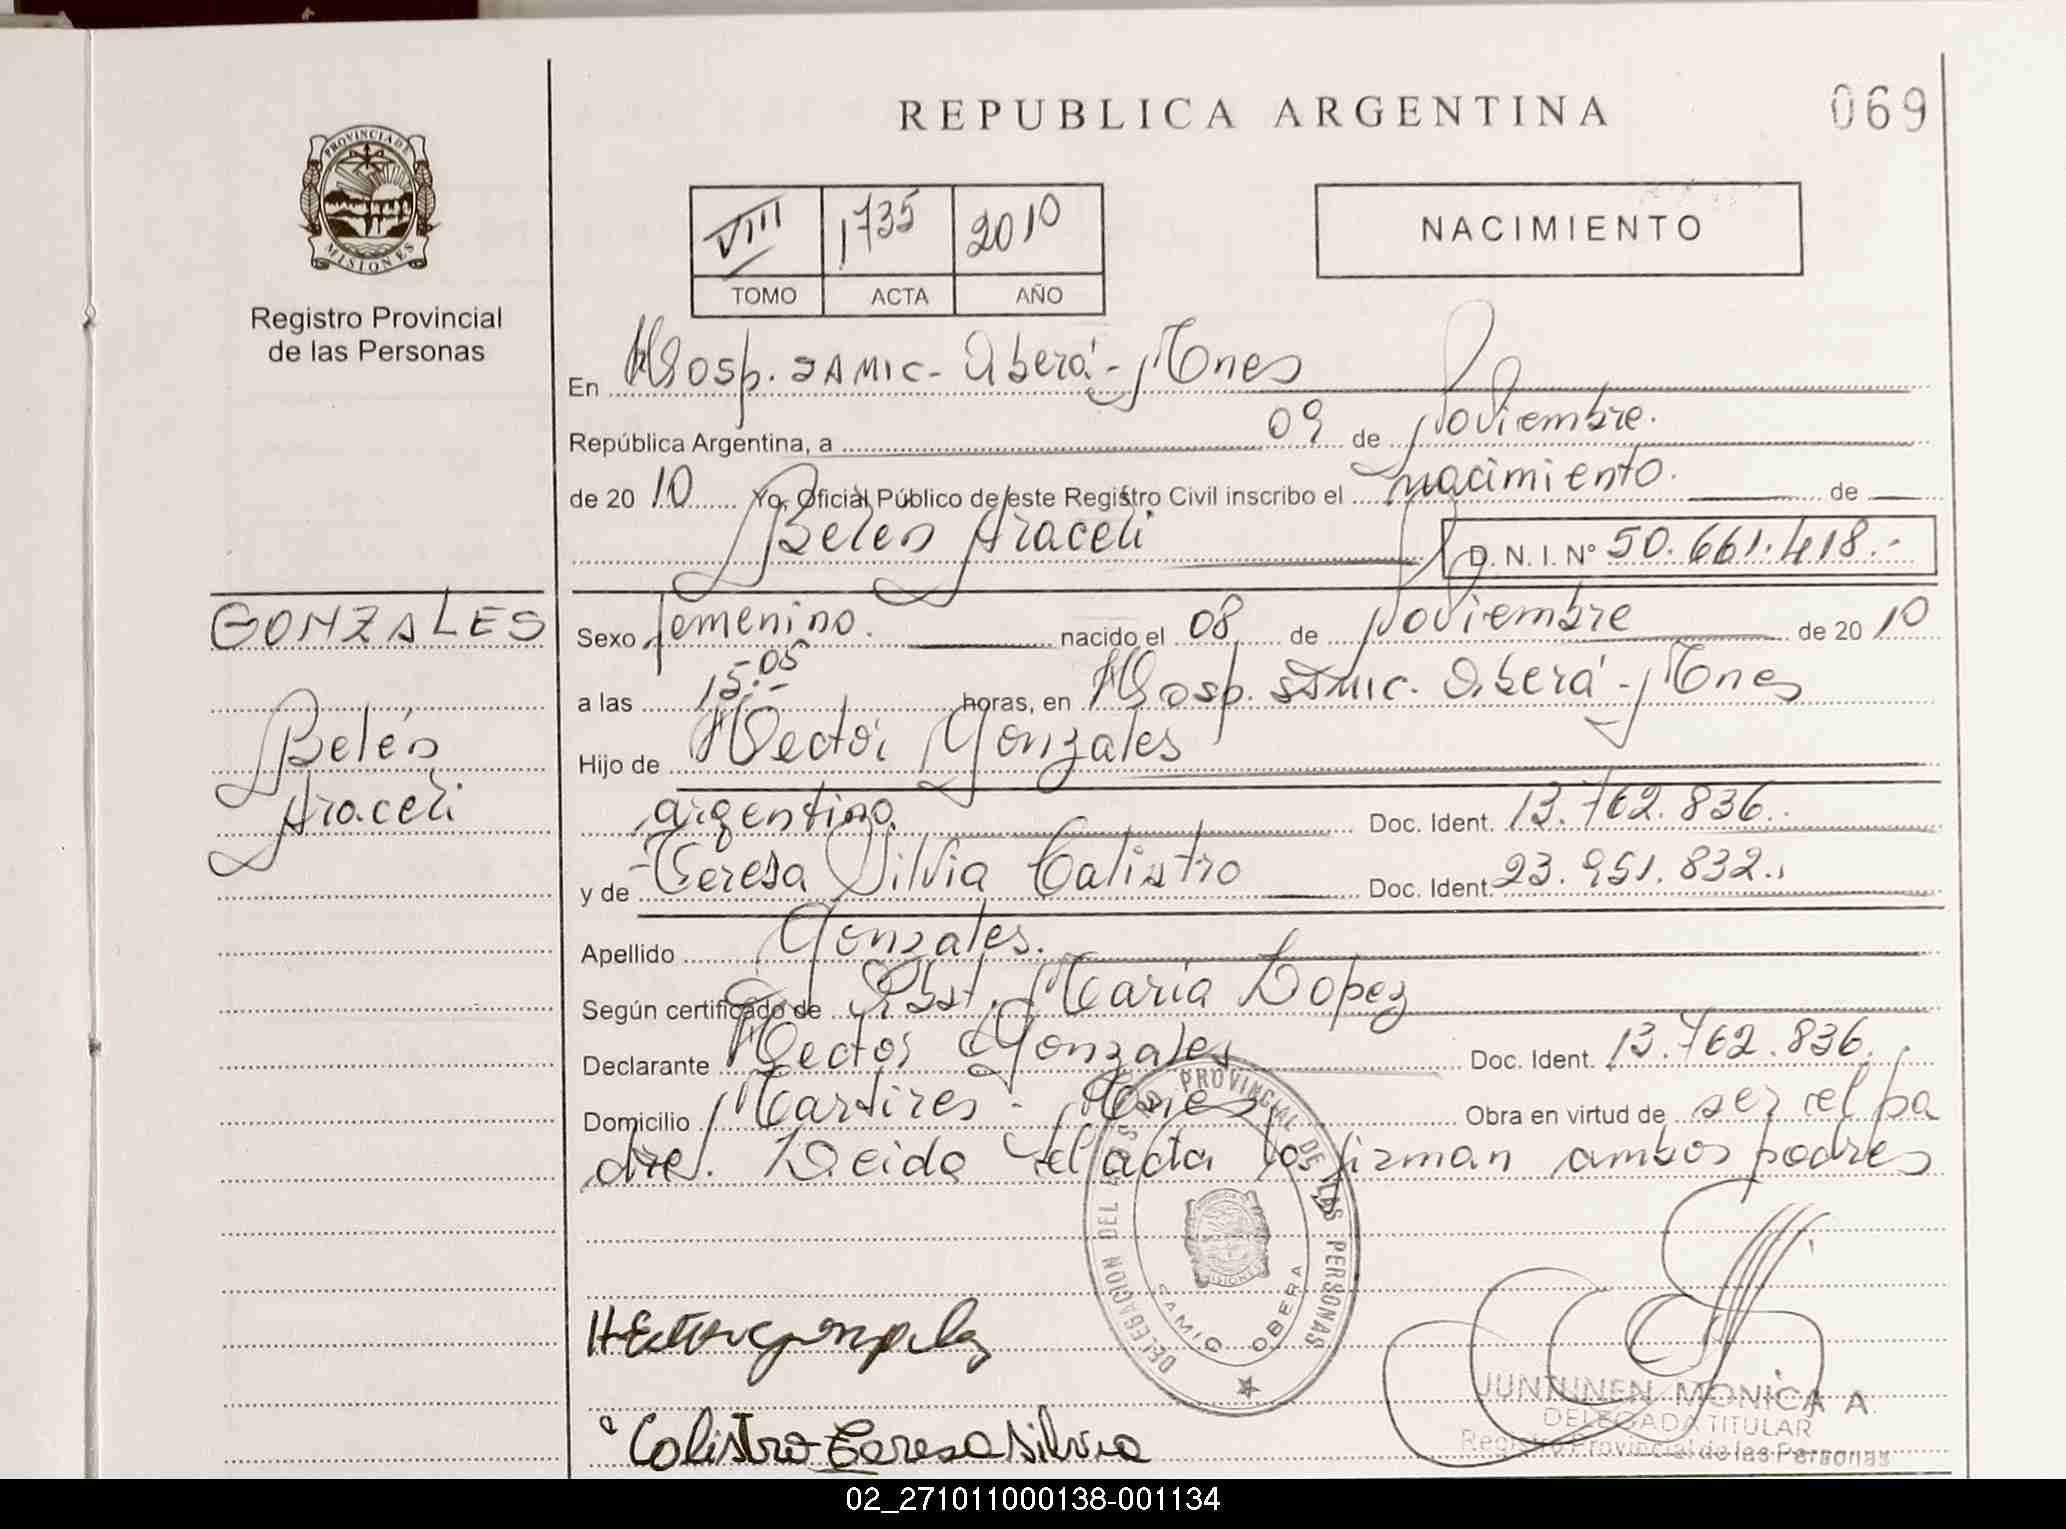 PROVINCIA DE
MISIONES
Registro Provincial
de las Personas
GONZALES
Belén
Araceli
REPUBLICA ARGENTINA
069
VIII 1735 2010
TOMO ACTA AÑO
NACIMIENTO
En Hosp. SAMIC - Oberá - Mnes
República Argentina, a 09 de Noviembre.
de 20 10 Yo, Oficial Público de este Registro Civil inscribo el nacimiento. de
Belén Araceli D. N. I. N° 50.661.418.-
Sexo femenino. nacido el 08 de Noviembre de 20 10
a las 15:05 horas, en Hosp. SAMIC. Oberá - Mnes
Hijo de Hector Gonzales
argentino. Doc. Ident. 13.762.836.
y de Teresa Silvia Calistro Doc. Ident. 23.951.832.
Apellido Gonzales.
Según certificado de Obst. María Lopez
Declarante Hector Gonzales Doc. Ident. 13.762.836.
Domicilio Martires - Mnes Obra en virtud de ser el pa
dre. Leida el acta la firman ambos padres
DELEGACION DEL REG. PROVINCIAL DE LAS PERSONAS
MISIONES
SAMIC OBERA
HEctor gonzalez
Calistro Teresa Silvia
JUNTUNEN MONICA A.
DELEGADA TITULAR
Registro Provincial de las Personas
02_271011000138-001134